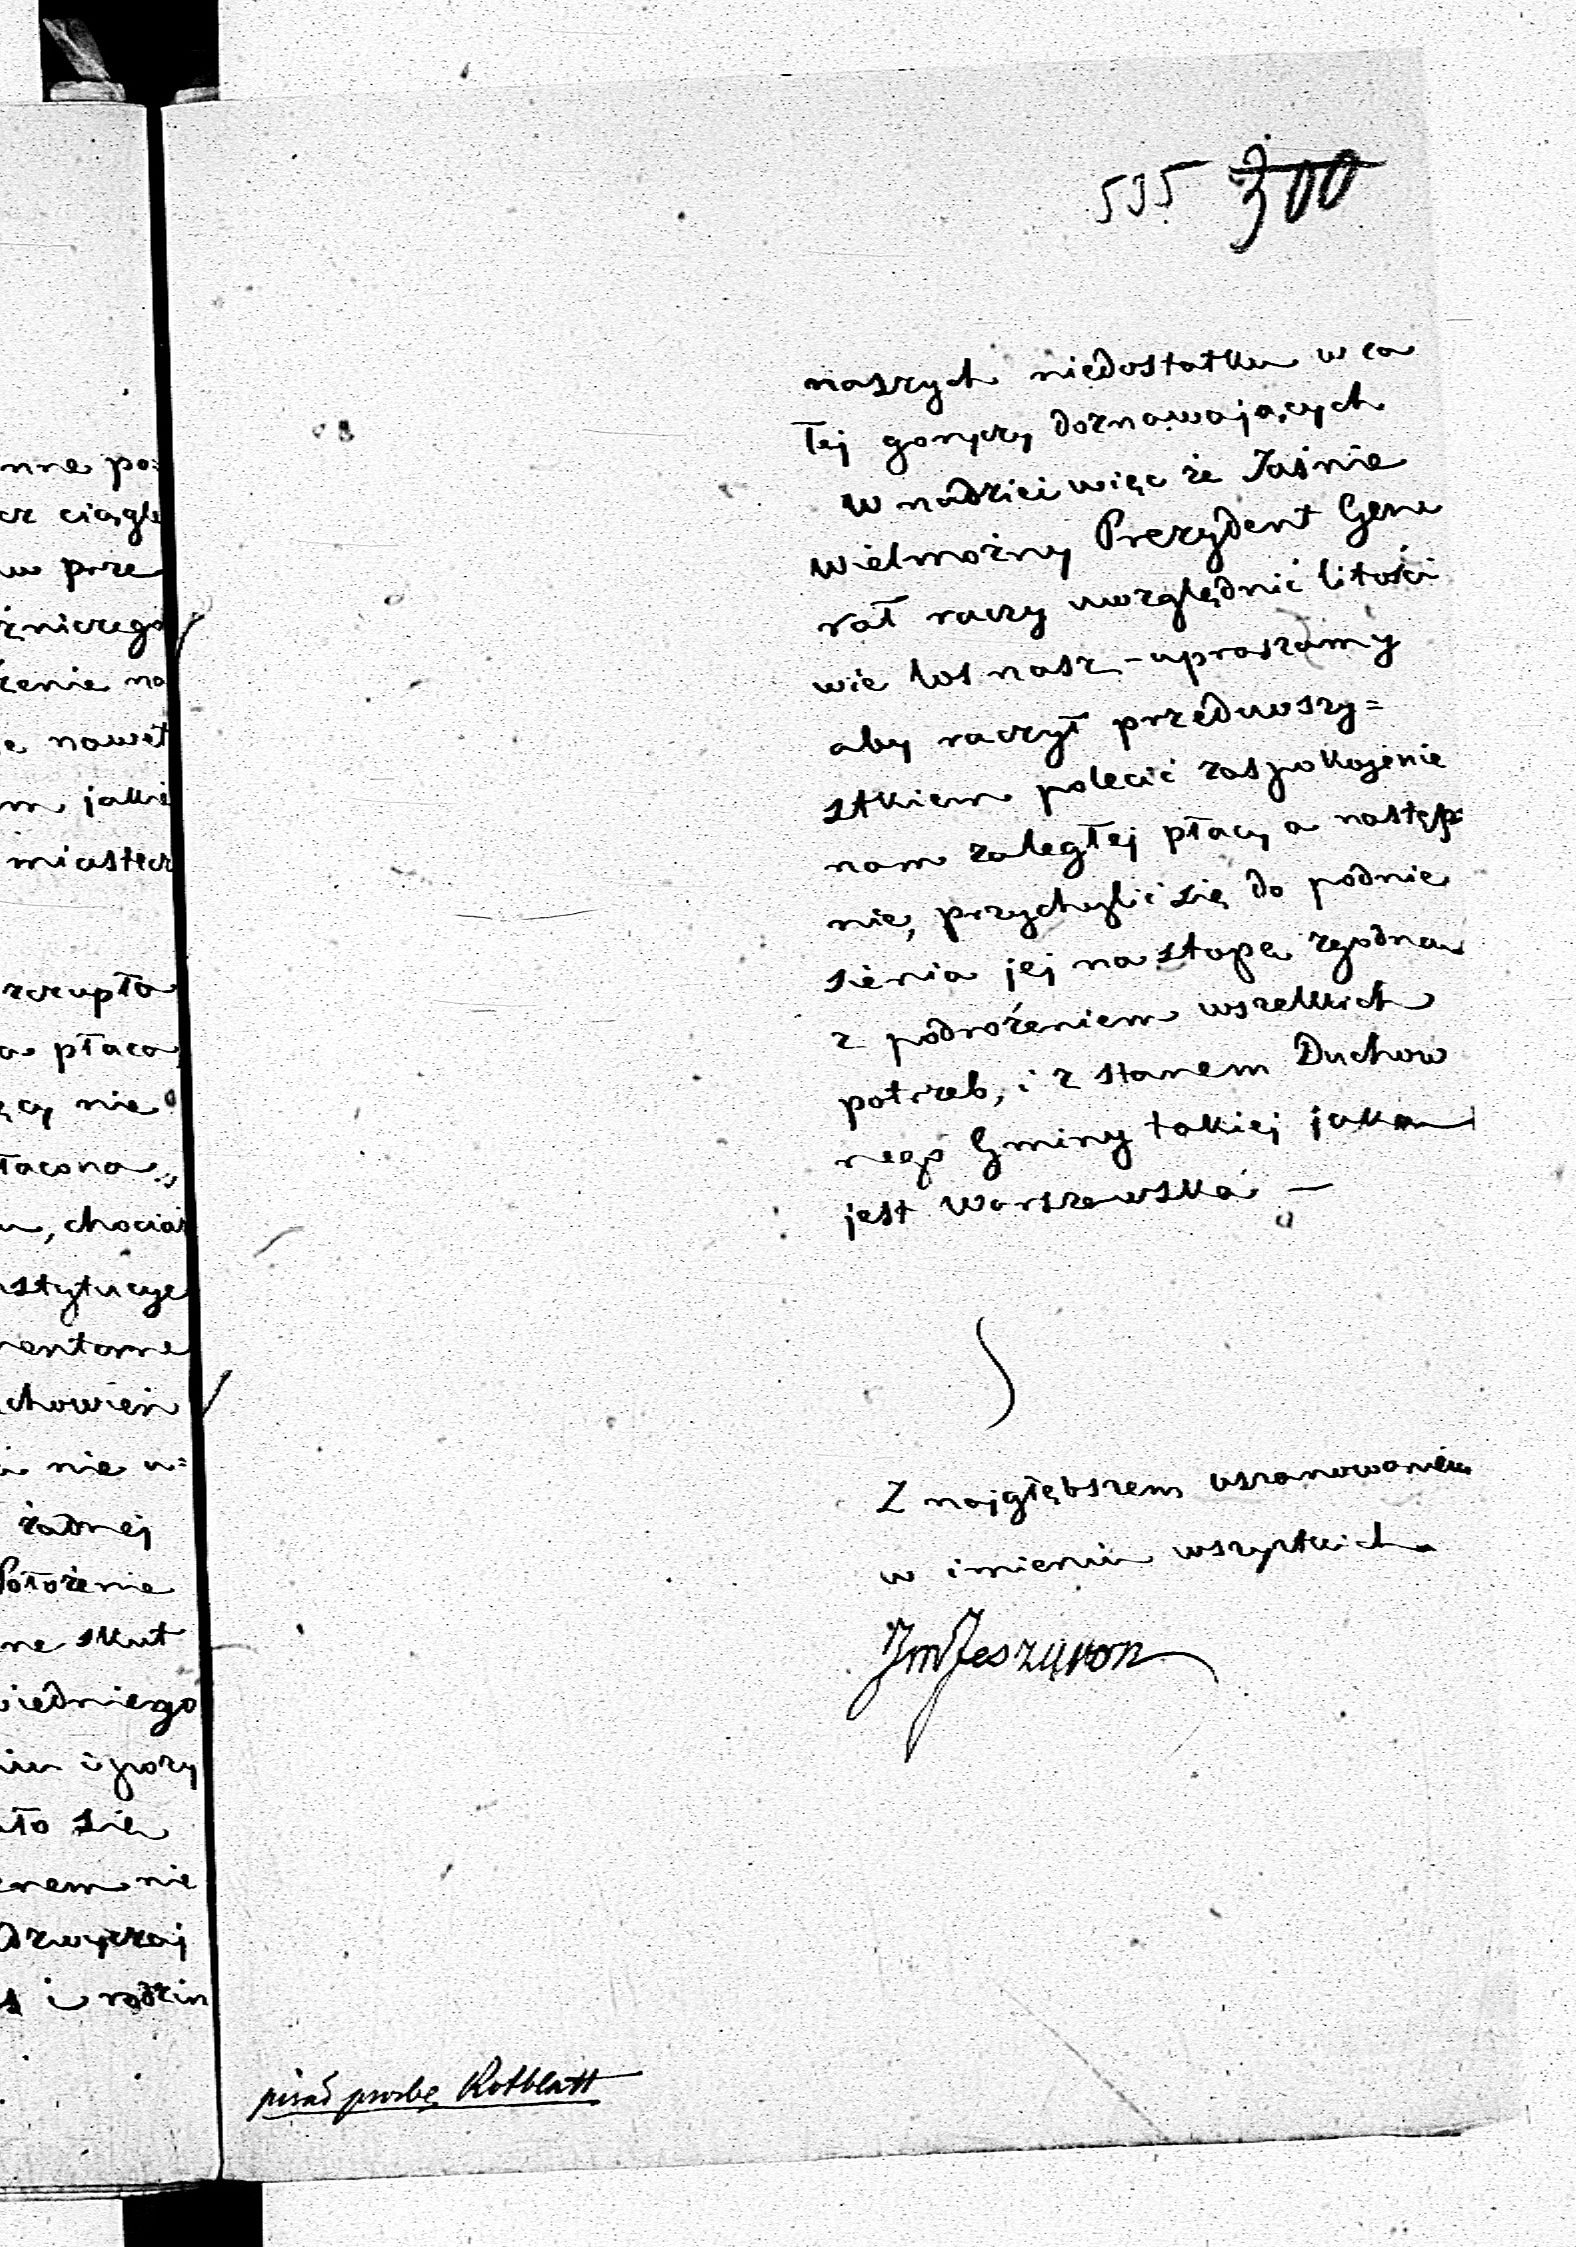 nne po:
cz ciągle
w prze
źniczego
żenie na
e nawet
m jakie
miastecz
szczupła
a płaca
ęcy nie
łacona,
u, chociaż
nstytucye
mentarne
chowień
i nie u=
żadnej
Położenie
ne skut
wiedniego
niu i pozy
ało się
enem nie
dzwyczaj
s i rodzin
535 300
naszych niedostatku w ca
łej goryczy doznawających
W nadziei więc że Jaśnie
Wielmożny Prezydent Gene
rał raczy uwzględnić litości
wie los nasz – upraszamy
aby raczył przedewszy=
stkiem polecić zaspokojenie
nam zaległej płacy a następ:
nie, przychylić się do podnie
sienia jej na stopę zgodną
z podrożeniem wszelkich
potrzeb, i z stanem Duchow
nego Gminy takiej jaką
jest Warszawska —
Z najgłębszem uszanowaniem
w imieniu wszystkich
pisał prośbę Rotblatt